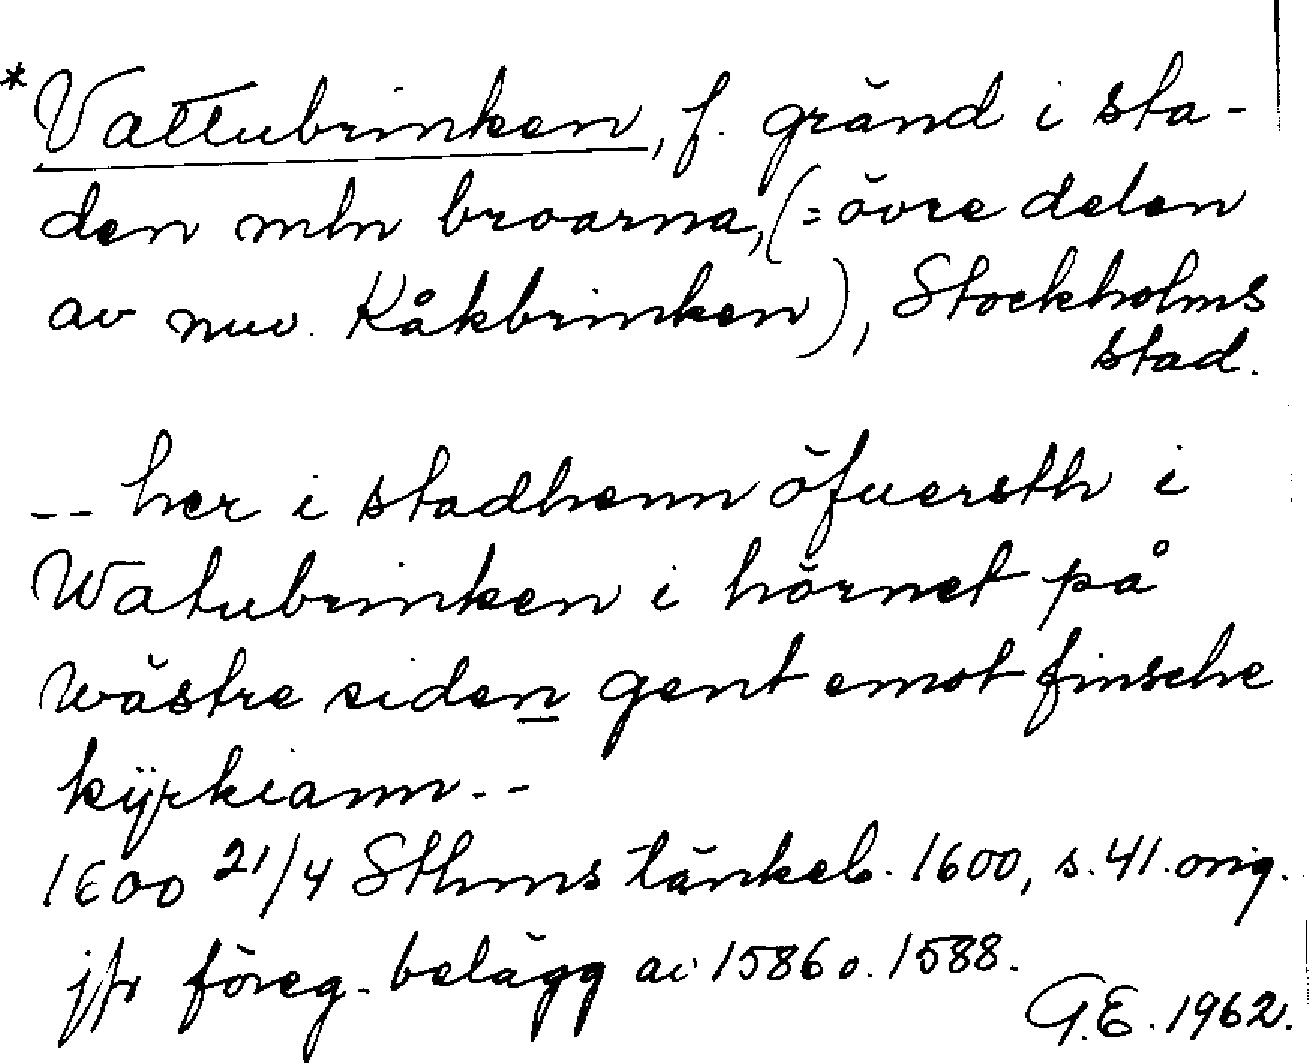 *Vattubrinken, f. gränd i sta-
den mln broarna, (= övre delen
av nuv. Kåkbrinken), Stockholms
stad.
-- her i stadhenn öfuersth i
Watubrinken i hörnet på
wästre siden gent emot finsche
kÿrkiann --
1600 21/4 Sthms tänkeb. 1600, s. 41. orig.
jfr föreg. belägg av 1586 o. 1588.
G.E. 1962.